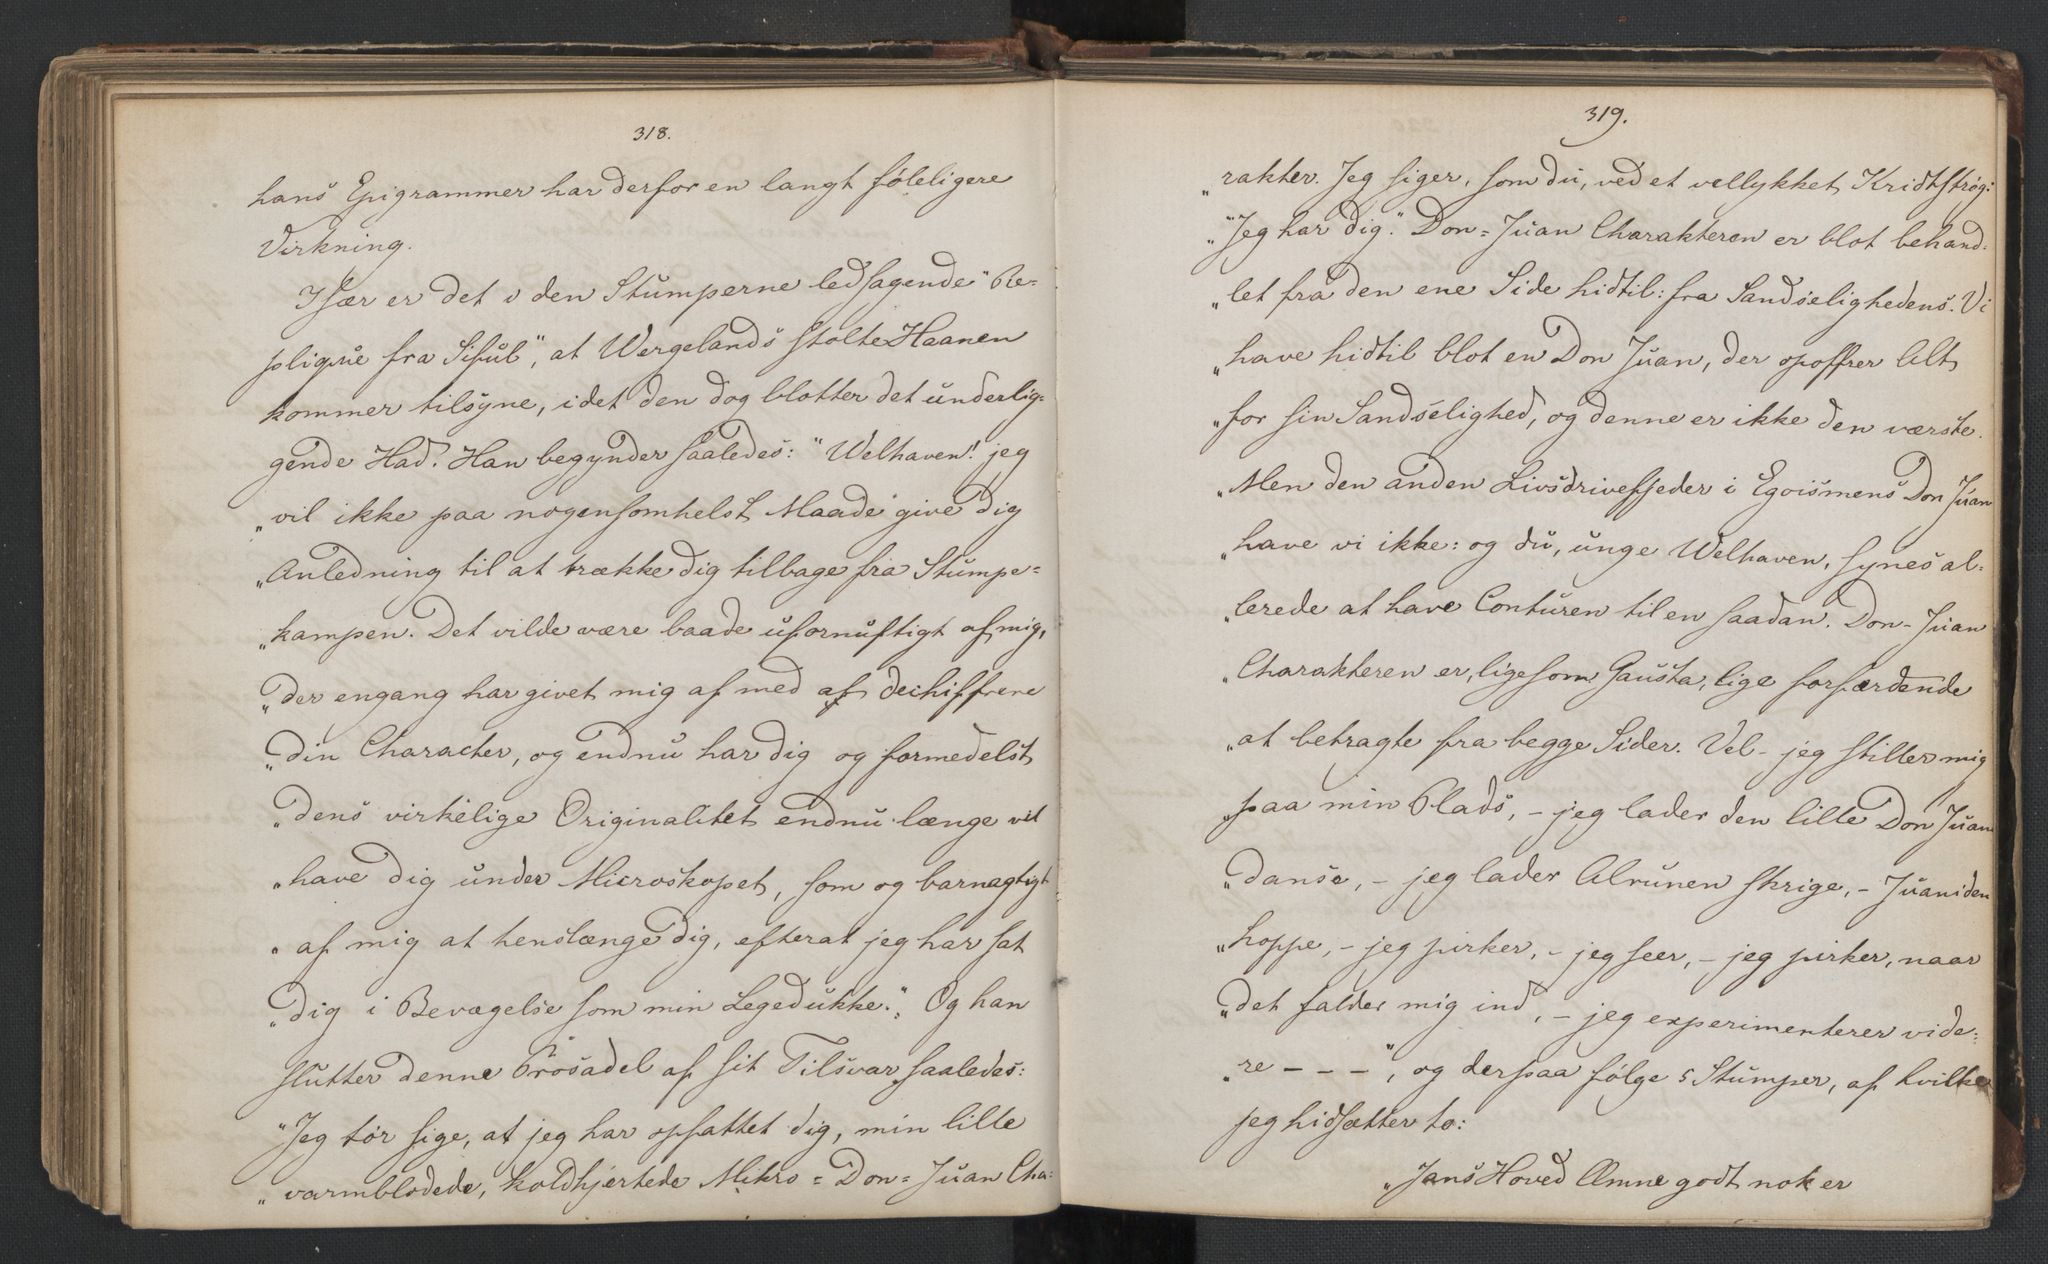 318.
hans Epigrammer har derfor en langt føleligere
Virkning.
Især er det i den Stumperne ledsagende "Re-
plique fra Siful", at Wergelands stolte Haanen
kommer tilsyne, idet den dog blotter det underlig-
gende Had. Han begynder saaledes: "Welhaven! jeg
"vil ikke paa nogensomhelst Maade give dig
"Anledning til at trække dig tilbage fra Stumpe-
"kampen. Det vilde være baade ufornuftigt af mig,
"der engang har givet mig af med at dechiffrere
"din Character, og endnu har dig og formedelst
"dens virkelige Originalitet endnu længe vil
"have dig under Microskopet, som og barnagtigt
"af mig at henslænge dig, efterat jeg har sat
"dig i Bevægelse som min Legedukke." Og han
slutter denne Prosadel af sit Tilsvar saaledes:
"Jeg tør sige, at jeg har opfattet dig, min lille
"varmblodede, koldhjertede Mikro-Don-Juan Cha-
319.
"rakter. Jeg siger, som du, ved et vellykket Kridtstrøg:
"Jeg har dig." Don-Juan Charakteren er blot behand-
"let fra den ene Side hidtil: fra Sandselighedens. Vi
"have hidtil blot en Don Juan, der opoffrer Alt
"for sin Sandselighed, og denne er ikke den værste.
"Men den anden Livsdrivefjeder i Egoismens Don Juan
"have vi ikke: og du, unge Welhaven, synes al-
"lerede at have Conturen til en saadan. Don-Juan
"Charakteren er, ligesom Gausta, lige forfærdende
"at betragte fra begge Sider. Vel - jeg stiller mig
"paa min Plads, - jeg lader den lille Don Juan
"danse, - jeg lader Alrunen skrige, - Juaniden
"hoppe, - jeg pirker, - jeg seer, - jeg pirker, naar
"det falder mig ind, - jeg experimenterer vide-
"re - - - ", og derpaa følge 5 Stumper, af hvilke
jeg hidsætter to:
"Jans Hoved Æmne godt nok er